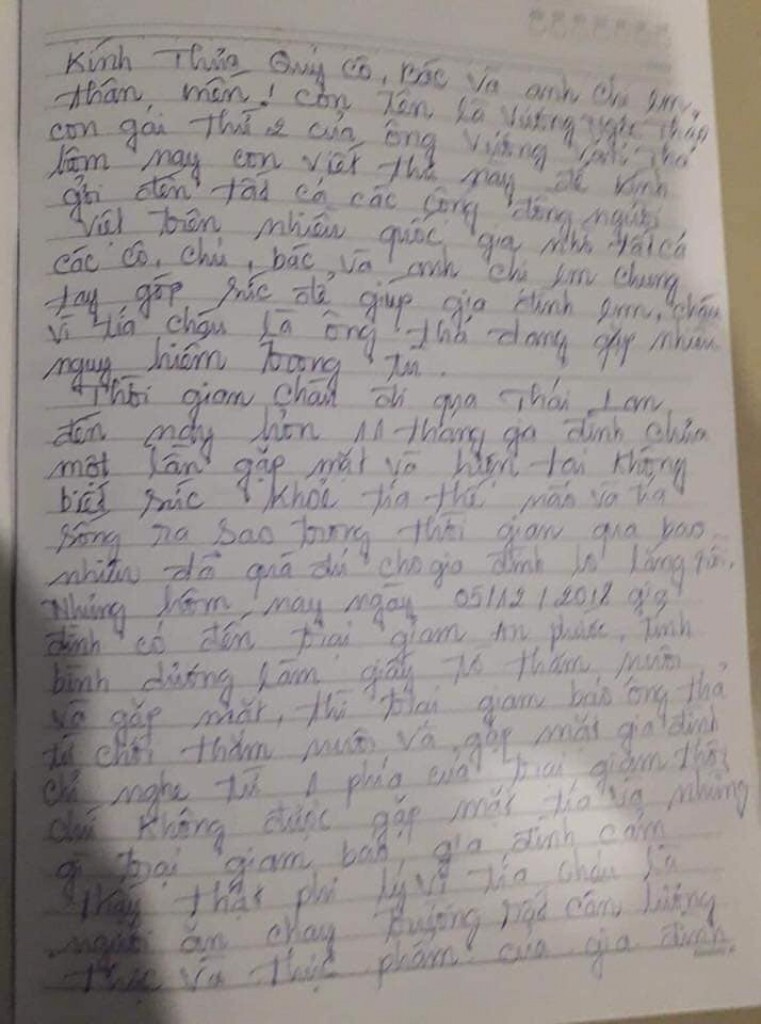 Kính Thưa Quý cô, Bác và anh chị em,
thân mến! con Tên là Vương Ngọc Thảo
con gái thứ 2 của ông Vương Văn Thả
hôm nay con viết thư này để kính
gửi đến tất cả các cộng đồng người
Việt trên nhiều quốc gia nhờ tất cả
các cô, chú, bác, và anh chị em chung
tay góp sức để giúp gia đình em, cháu
vì tía cháu là ông thả đang gặp nhiều
nguy hiểm trong tù.
Thời gian cháu đi qua Thái Lan
đến nay hơn 11 tháng ga đình chưa
một lần gặp mặt và hiện tại không
biết sức khỏe tía thế nào và tía
sống ra sao trong thời gian qua bao
nhiêu đó quá đủ cho gia đình lo lắng rồi.
Nhưng hôm nay ngày 05/12/2018 gia
đình có đến trại giam An phước, tỉnh
bình dương làm giấy tờ thăm nuôi
và gặp mặt, thì trại giam báo ông thả
từ chối thăm nuôi và gặp mặt gia đình
chỉ nghe từ 1 phía của trại giam thôi
chứ không được gặp mặt tía và những
gì trại giam báo, gia đình cảm
thấy thật phi lý vì tía cháu là
người ăn chay trường rất cần lương
thực và thực phẩm của gia đình.